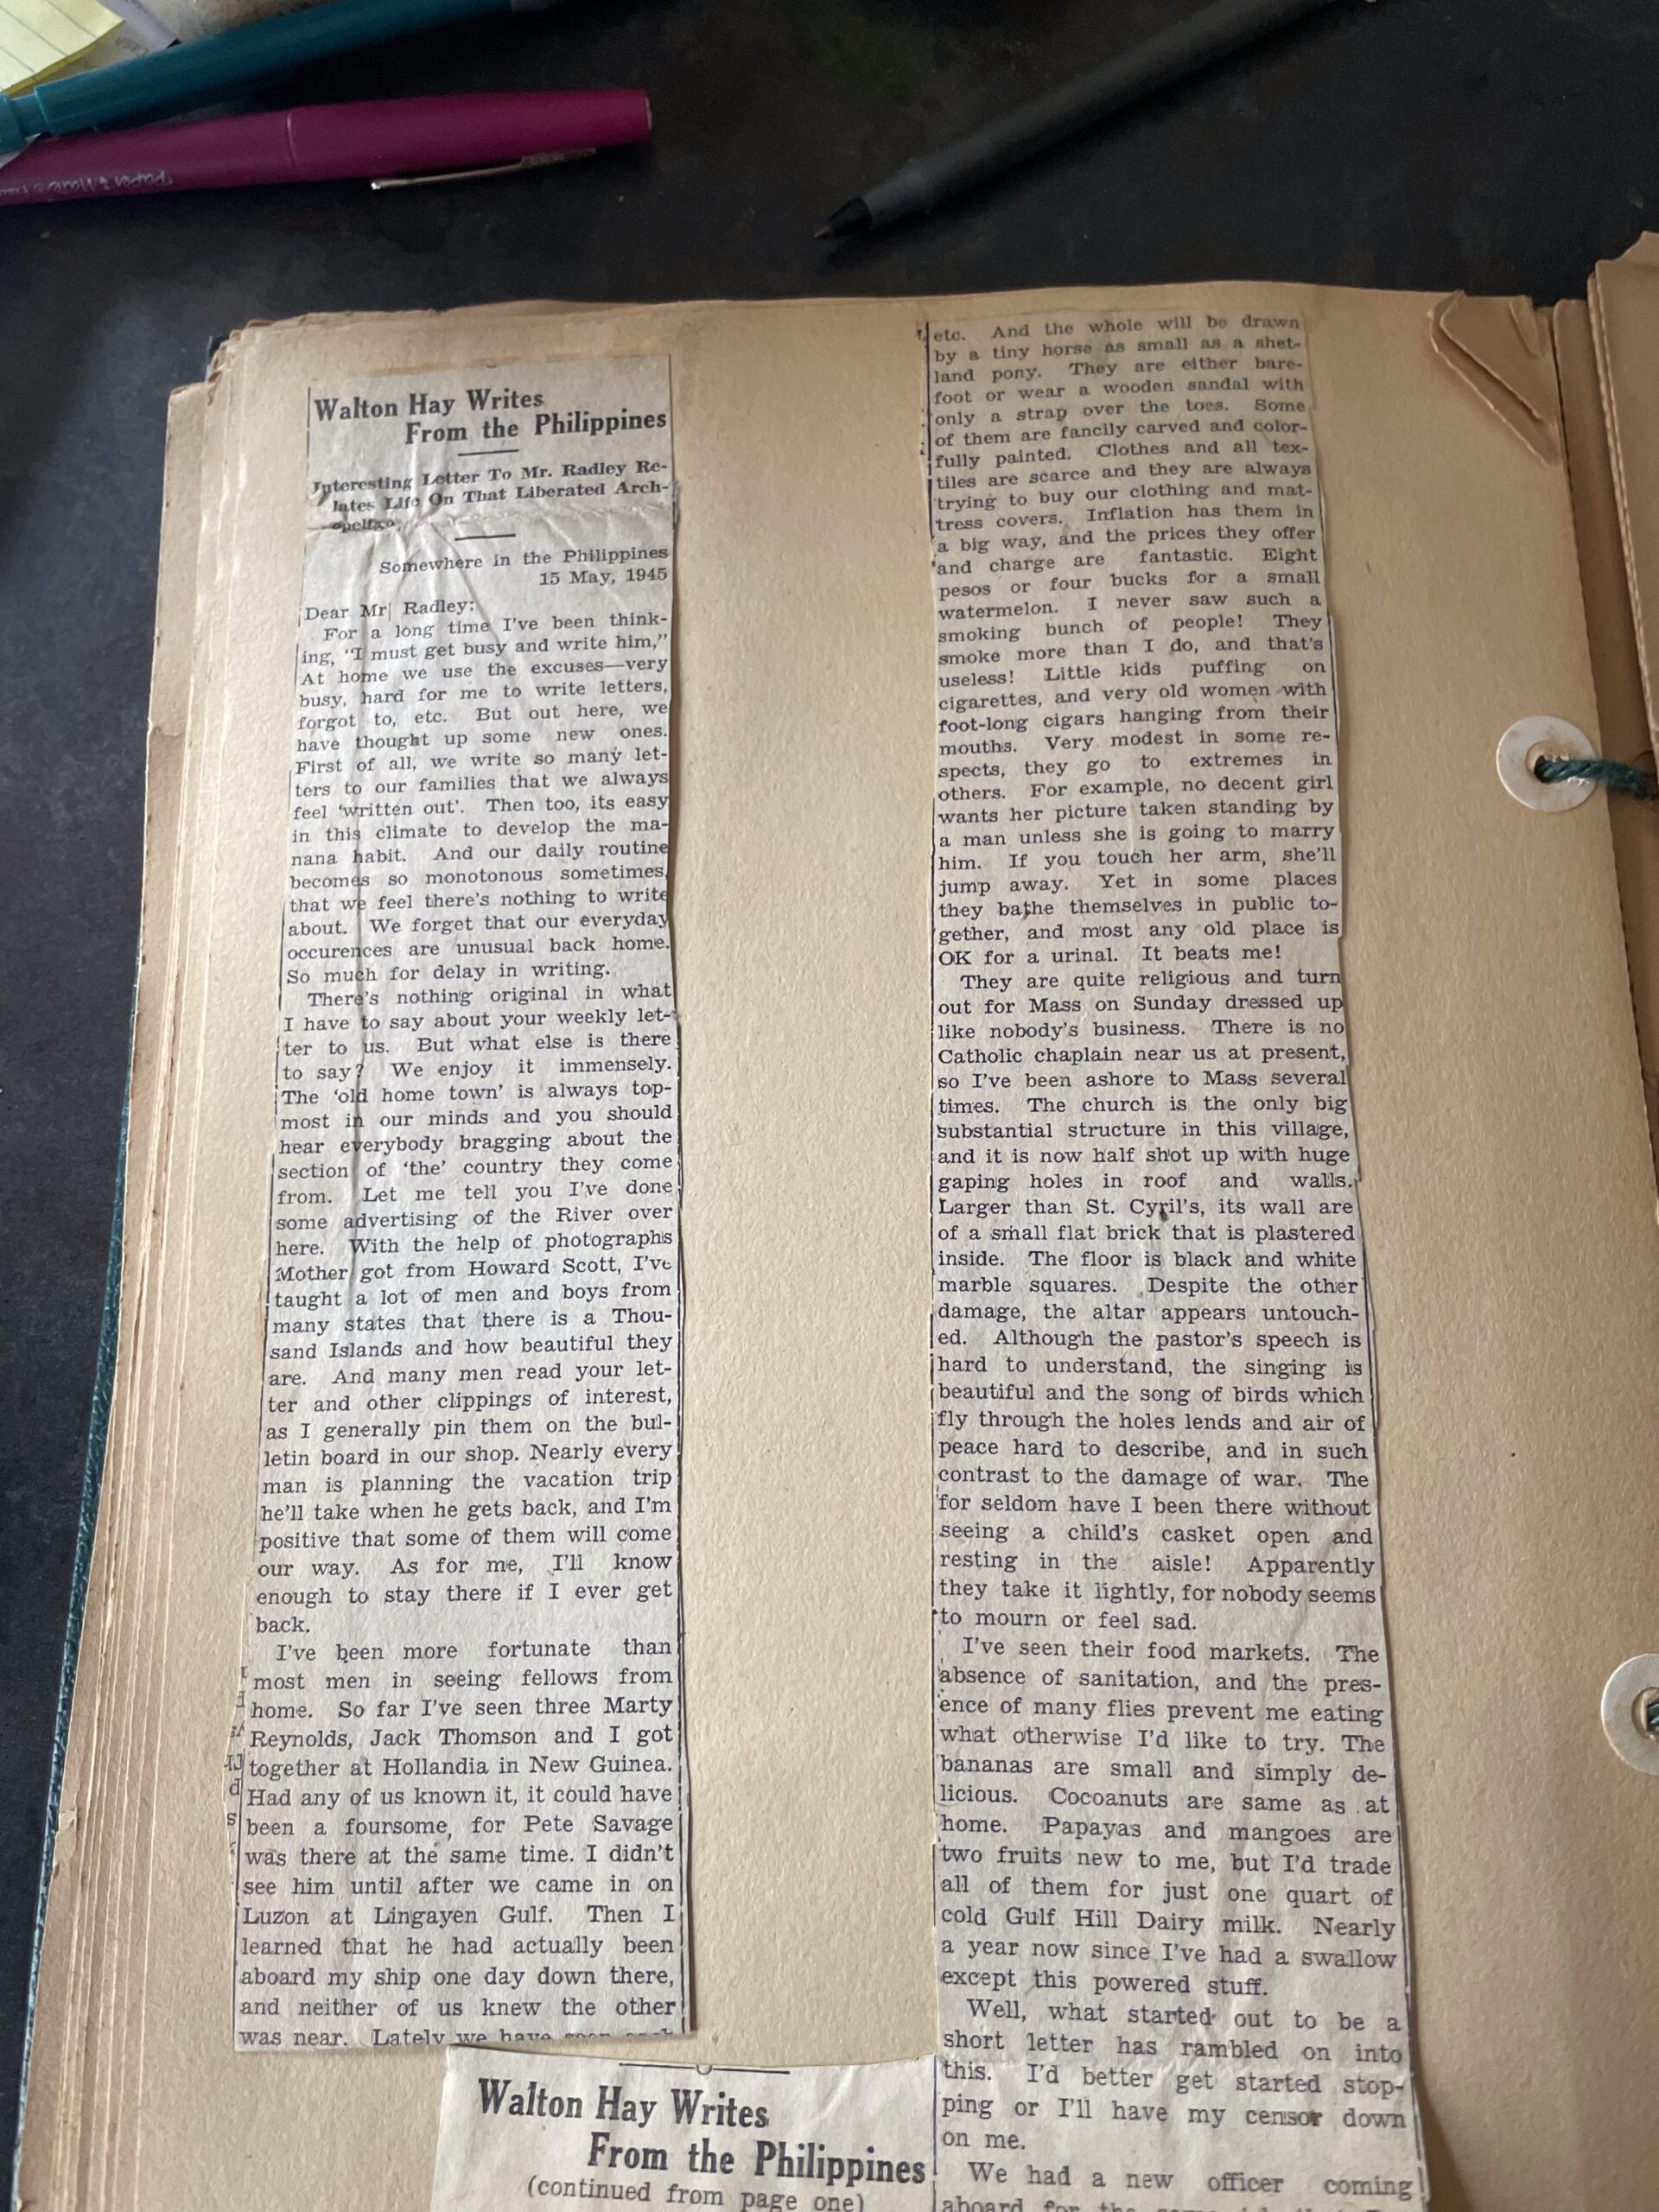 Paper Mate
Walton Hay Writes
From the Philippines
Interesting Letter To Mr. Radley Re-
lates Life On That Liberated Arch-
opelfgo.
Somewhere in the Philippines
15 May, 1945
Dear Mr Radley:
For a long time I've been think-
ing, "I must get busy and write him,"
At home we use the excuses—very
busy, hard for me to write letters,
forgot to, etc. But out here, we
have thought up some new ones.
First of all, we write so many let-
ters to our families that we always
feel 'written out'. Then too, its easy
in this climate to develop the ma-
nana habit. And our daily routine
becomes so monotonous sometimes,
that we feel there's nothing to write
about. We forget that our everyday
occurences are unusual back home.
So much for delay in writing.
There's nothing original in what
I have to say about your weekly let-
ter to us. But what else is there
to say? We enjoy it immensely.
The 'old home town' is always top-
most in our minds and you should
hear everybody bragging about the
section of 'the' country they come
from. Let me tell you I've done
some advertising of the River over
here. With the help of photographs
Mother got from Howard Scott, I've
taught a lot of men and boys from
many states that there is a Thou-
sand Islands and how beautiful they
are. And many men read your let-
ter and other clippings of interest,
as I generally pin them on the bul-
letin board in our shop. Nearly every
man is planning the vacation trip
he'll take when he gets back, and I'm
positive that some of them will come
our way. As for me, I'll know
enough to stay there if I ever get
back.
I've been more fortunate than
most men in seeing fellows from
home. So far I've seen three Marty
Reynolds, Jack Thomson and I got
together at Hollandia in New Guinea.
Had any of us known it, it could have
been a foursome, for Pete Savage
was there at the same time. I didn't
see him until after we came in on
Luzon at Lingayen Gulf. Then I
learned that he had actually been
aboard my ship one day down there,
and neither of us knew the other
was near. Lately we have seen each
Walton Hay Writes
From the Philippines
(continued from page one)
etc. And the whole will be drawn
by a tiny horse as small as a shet-
land pony. They are either bare-
foot or wear a wooden sandal with
only a strap over the toes. Some
of them are fancily carved and color-
fully painted. Clothes and all tex-
tiles are scarce and they are always
trying to buy our clothing and mat-
tress covers. Inflation has them in
a big way, and the prices they offer
and charge are fantastic. Eight
pesos or four bucks for a small
watermelon. I never saw such a
smoking bunch of people! They
smoke more than I do, and that's
useless! Little kids puffing on
cigarettes, and very old women with
foot-long cigars hanging from their
mouths. Very modest in some re-
spects, they go to extremes in
others. For example, no decent girl
wants her picture taken standing by
a man unless she is going to marry
him. If you touch her arm, she'll
jump away. Yet in some places
they bathe themselves in public to-
gether, and most any old place is
OK for a urinal. It beats me!
They are quite religious and turn
out for Mass on Sunday dressed up
like nobody's business. There is no
Catholic chaplain near us at present,
so I've been ashore to Mass several
times. The church is the only big
substantial structure in this village,
and it is now half shot up with huge
gaping holes in roof and walls.
Larger than St. Cyril's, its wall are
of a small flat brick that is plastered
inside. The floor is black and white
marble squares. Despite the other
damage, the altar appears untouch-
ed. Although the pastor's speech is
hard to understand, the singing is
beautiful and the song of birds which
fly through the holes lends and air of
peace hard to describe, and in such
contrast to the damage of war. The
for seldom have I been there without
seeing a child's casket open and
resting in the aisle! Apparently
they take it lightly, for nobody seems
to mourn or feel sad.
I've seen their food markets. The
absence of sanitation, and the pres-
ence of many flies prevent me eating
what otherwise I'd like to try. The
bananas are small and simply de-
licious. Cocoanuts are same as at
home. Papayas and mangoes are
two fruits new to me, but I'd trade
all of them for just one quart of
cold Gulf Hill Dairy milk. Nearly
a year now since I've had a swallow
except this powered stuff.
Well, what started out to be a
short letter has rambled on into
this. I'd better get started stop-
ping or I'll have my censor down
on me.
We had a new officer coming
aboard for the